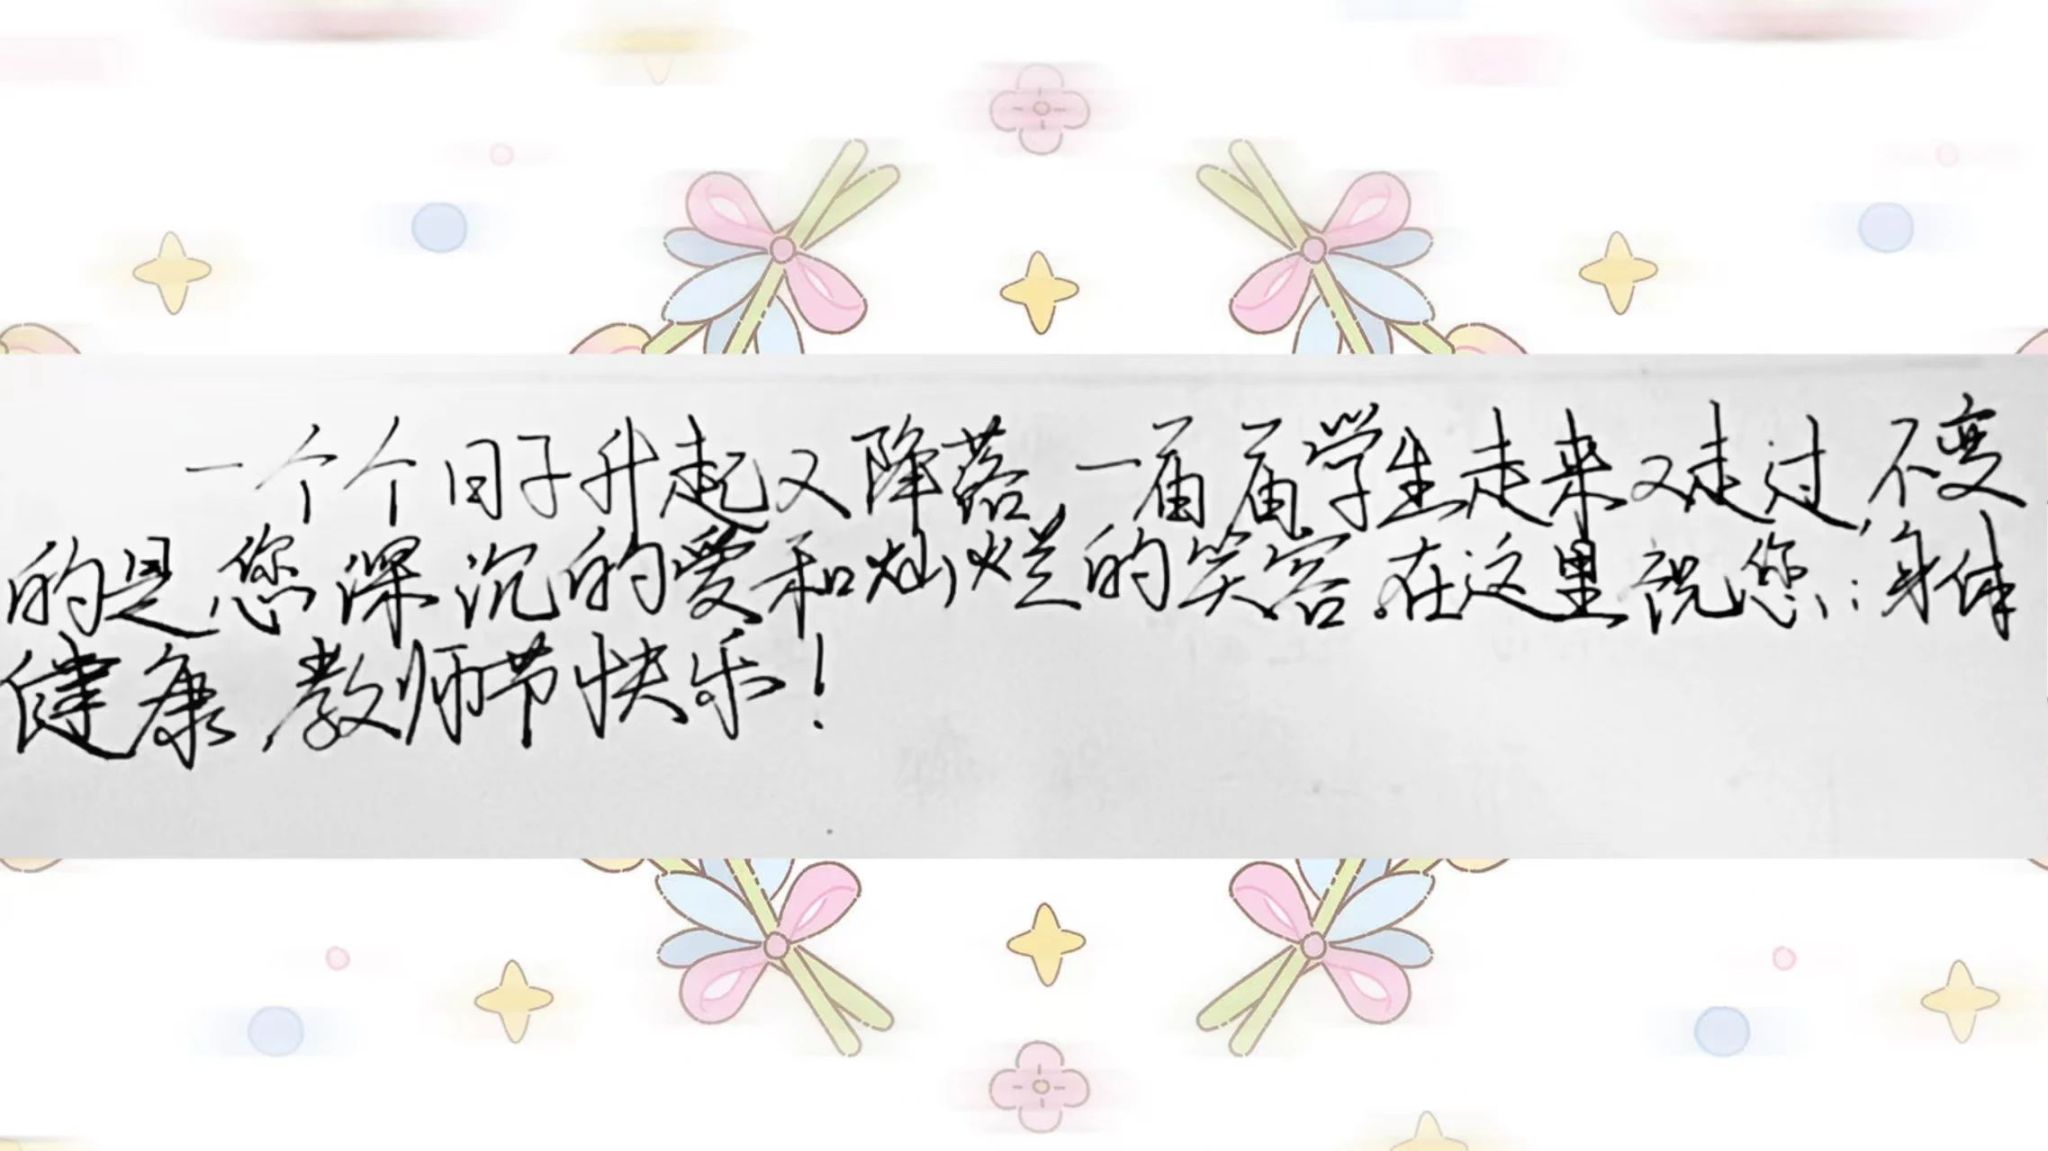 一个个日子升起又降落,一届届学生走来又走过,不变
的是您深沉的爱和灿烂的笑容。在这里祝您:身体
健康,教师节快乐!